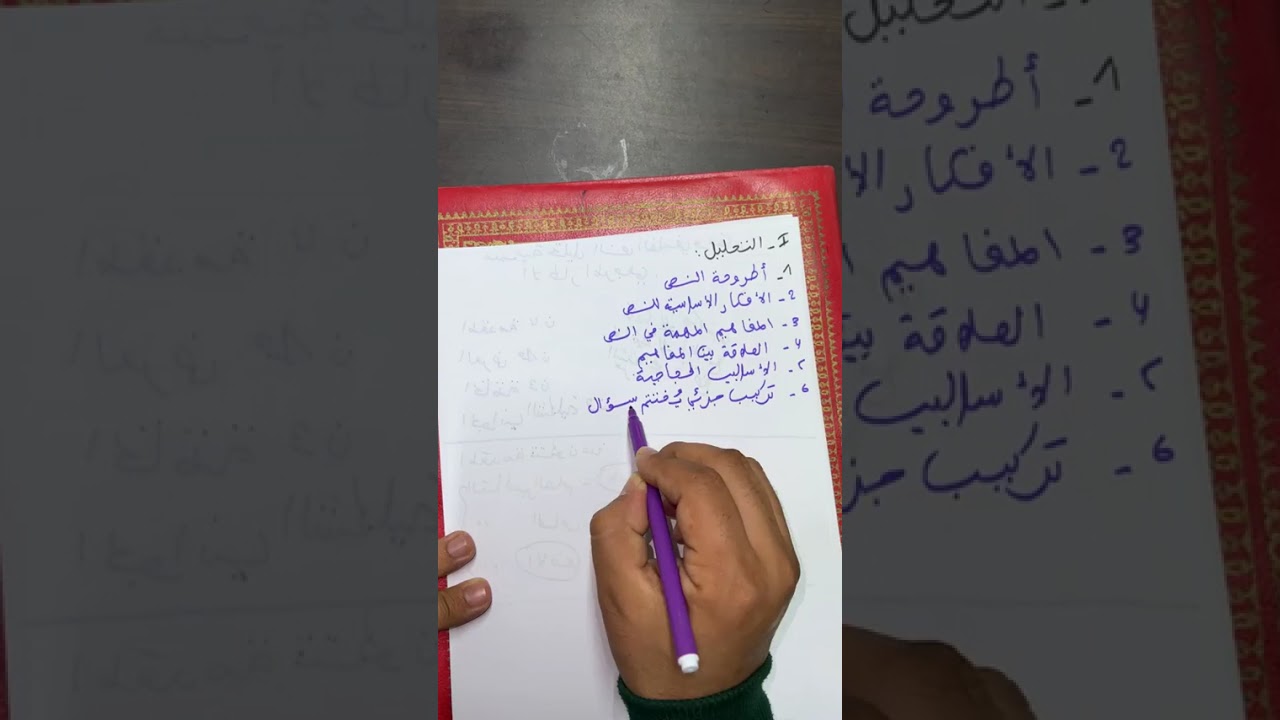 I - التحليل :
1- أطروحة النص
2- الأفكار الأساسية للنص
3- المفاهيم المهمة في النص
4- العلاقة بين المفاهيم
5- الأساليب الحجاجية
6- تركيب جزئي سؤال